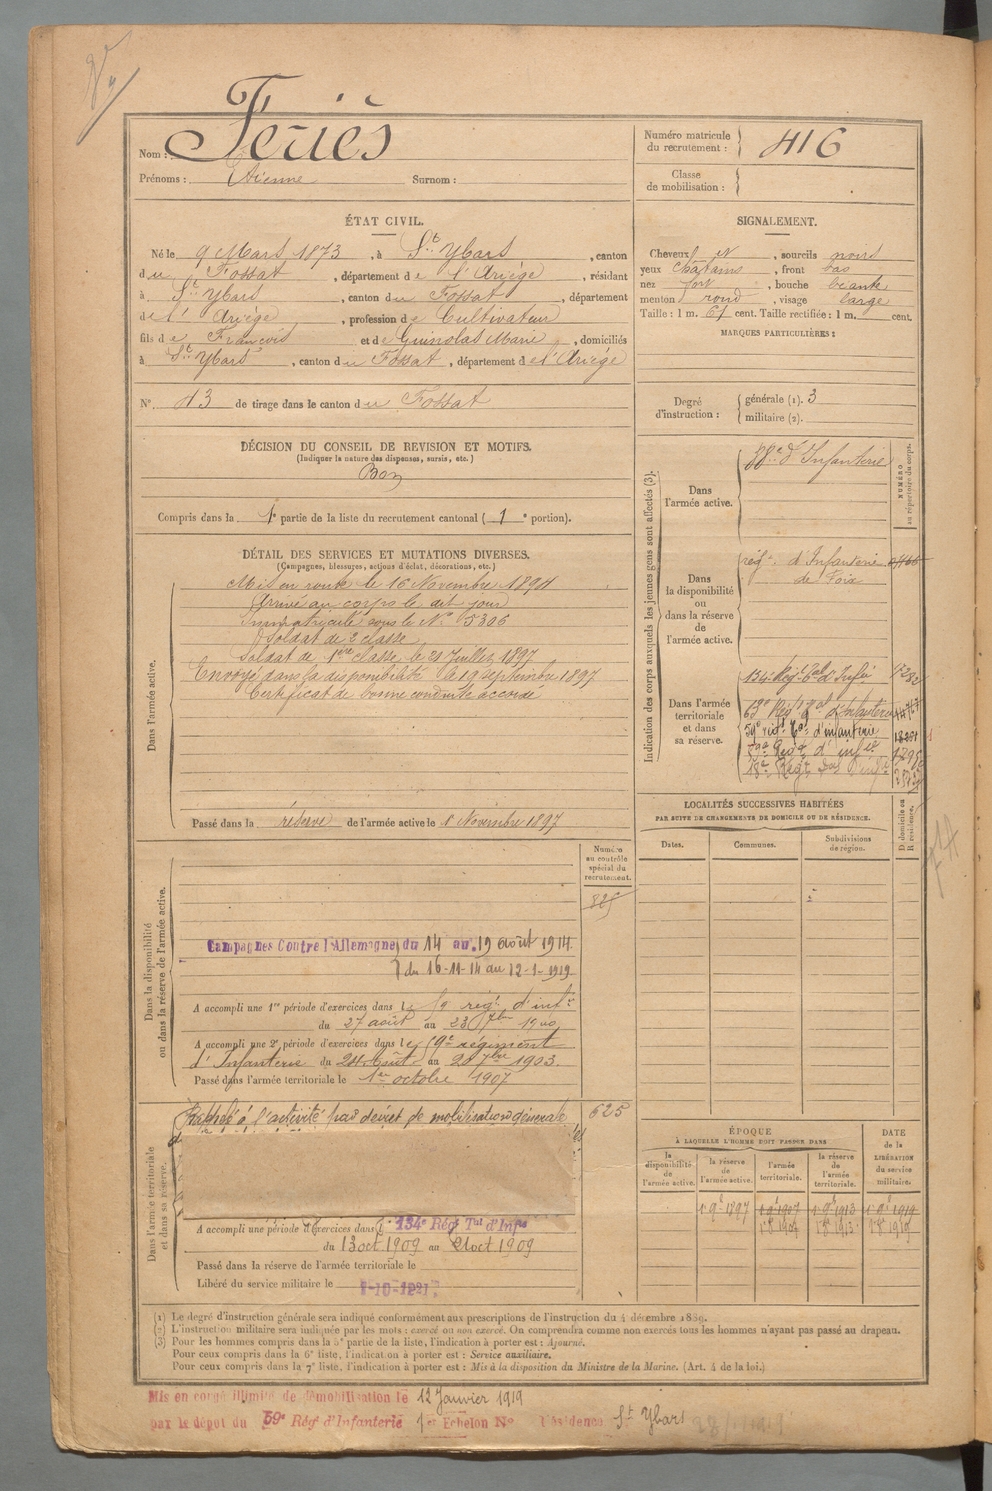 Nom : Feriès
Prénoms : Etienne Surnom :
Numéro matricule du recrutement : 416
Classe de mobilisation :
ÉTAT CIVIL.
Né le 9 Mars 1873, à St Ybars, canton
du Fossat, département de l'Ariège, résidant
à St Ybars, canton du Fossat, département
de l'Ariège, profession de Cultivateur
fils de François et de Guinolas Marie, domiciliés
à St Ybars, canton du Fossat, département de l'Ariège
N° 43 de tirage dans le canton du Fossat
SIGNALEMENT.
Cheveux et, sourcils noirs
yeux chatains, front bas
nez fort, bouche béante
menton rond, visage large
Taille : 1 m. 61 cent. Taille rectifiée : 1 m. cent.
MARQUES PARTICULIÈRES :
Degré d'instruction : générale (1). 3
militaire (2).
DÉCISION DU CONSEIL DE REVISION ET MOTIFS.
(Indiquer la nature des dispenses, sursis, etc.)
Bon
Compris dans la 1e partie de la liste du recrutement cantonal (1e portion).
DÉTAIL DES SERVICES ET MUTATIONS DIVERSES.
(Campagnes, blessures, actions d'éclat, décorations, etc.)
Dans l'armée active.
Mis en route le 16 Novembre 1894
Arrivé au corps le dit jour
Immatriculé sous le N° 5306
Soldat de 2 classe
Soldat de 1ère classe le 21 Juillet 1897
Envoyé dans la disponibilité le 19 septembre 1897
Certificat de bonne conduite accordé
Passé dans la réserve de l'armée active le 1 Novembre 1897
Indication des corps auxquels les jeunes gens sont affectés (3).
NUMÉRO au répertoire du corps.
Dans l'armée active.
d'Infanterie
Dans la disponibilité ou dans la réserve de l'armée active.
régt d'Infanterie
de Foix
Dans l'armée territoriale et dans sa réserve.
134 Régt Tal d'Infie
59e régt d'infanterie
LOCALITÉS SUCCESSIVES HABITÉES
PAR SUITE DE CHANGEMENTS DE DOMICILE OU DE RÉSIDENCE.
Dates. Communes. Subdivisions de région. D domicile ou R résidence.
Dans la disponibilité ou dans la réserve de l'armée active.
Numéro au contrôle spécial du recrutement.
825
Campagnes Contre l'Allemagne, du 14 au 19 août 1914.
du 16-11-14 au 12-1-1919
A accompli une 1re période d'exercices dans le 59 régt d'infie
du 27 août au 23 7bre 1900
A accompli une 2e période d'exercices dans le 59e régiment
d'Infanterie du 24 Août au 20 7bre 1903.
Passé dans l'armée territoriale le 1er octobre 1907
Dans l'armée territoriale et dans sa réserve.
Rappelé à l'activité par décret de mobilisation générale
625
A accompli une période d'exercices dans le 134e Régt Tal d'Infie
du 13 oct 1909 au 21 oct 1909
Passé dans la réserve de l'armée territoriale le
Libéré du service militaire le 1-10-1921.
ÉPOQUE
À LAQUELLE L'HOMME DOIT PASSER DANS
la disponibilité de l'armée active. la réserve de l'armée active. l'armée territoriale. la réserve de l'armée territoriale.
DATE de la LIBÉRATION du service militaire.
(1) Le degré d'instruction générale sera indiqué conformément aux prescriptions de l'instruction du 4 décembre 1889.
(2) L'instruction militaire sera indiquée par les mots : exercé ou non exercé. On comprendra comme non exercés tous les hommes n'ayant pas passé au drapeau.
(3) Pour les hommes compris dans la 5e partie de la liste, l'indication à porter est : Ajourné.
Pour ceux compris dans la 6e liste, l'indication à porter est : Service auxiliaire.
Pour ceux compris dans la 7e liste, l'indication à porter est : Mis à la disposition du Ministre de la Marine. (Art. 4 de la loi.)
Mis en congé illimité de démobilisation le 12 Janvier 1919
par le dépôt du 59e Régt d'Infanterie 1er Echelon N° résidence St Ybars